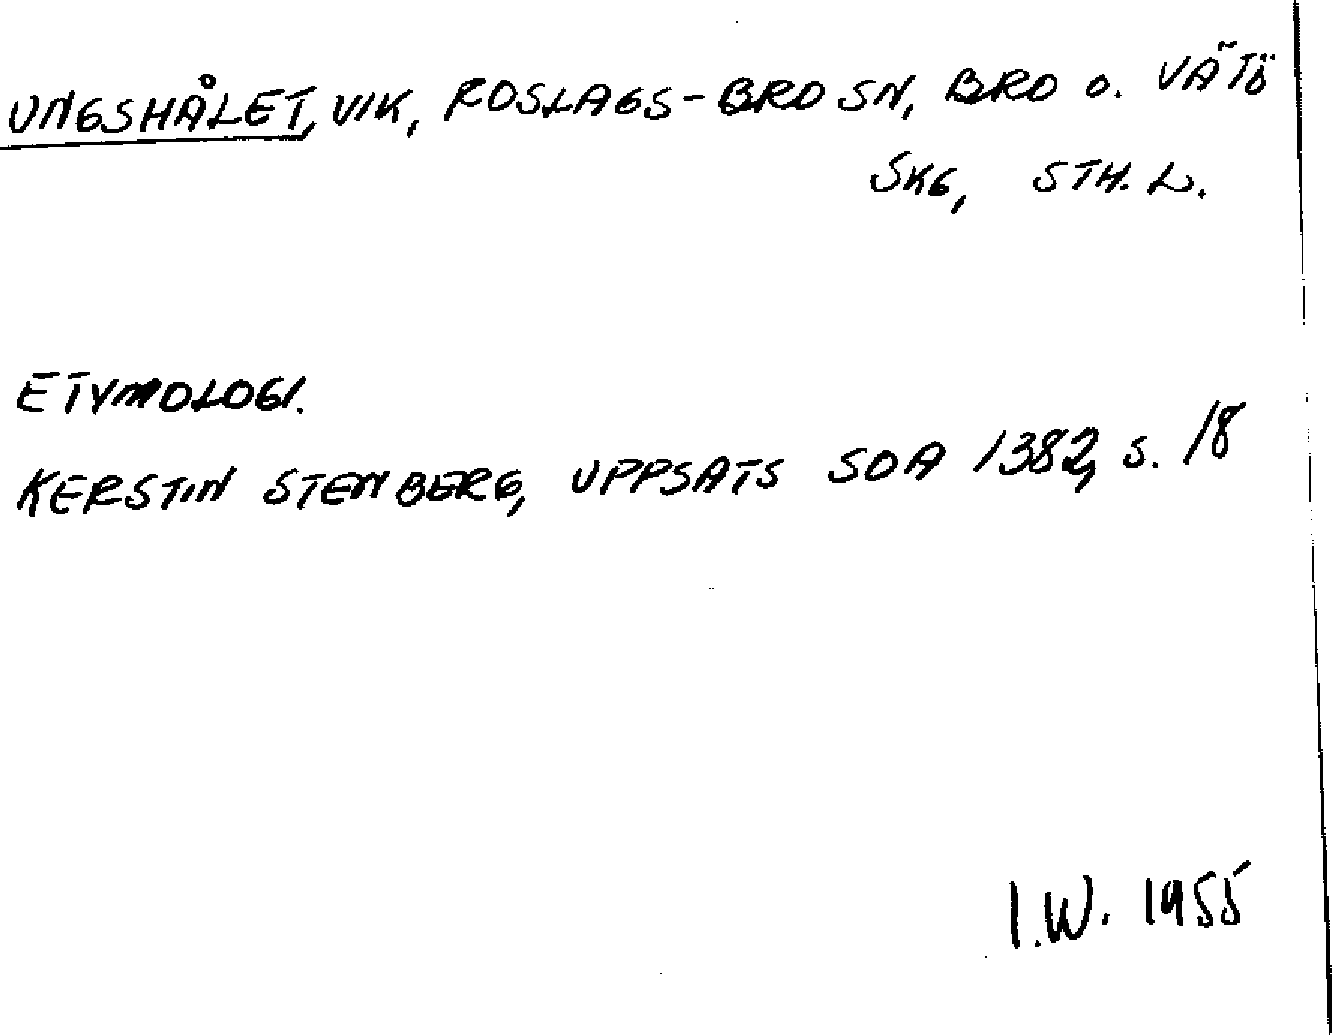 UNGSHÅLET, VIK, ROSLAGS-BRO SN, BRO O. VÄTÖ
SKG, STH. L.
ETYMOLOGI.
KERSTIN STENBERG, UPPSATS SOA 1382, S. 18
I.W. 1955